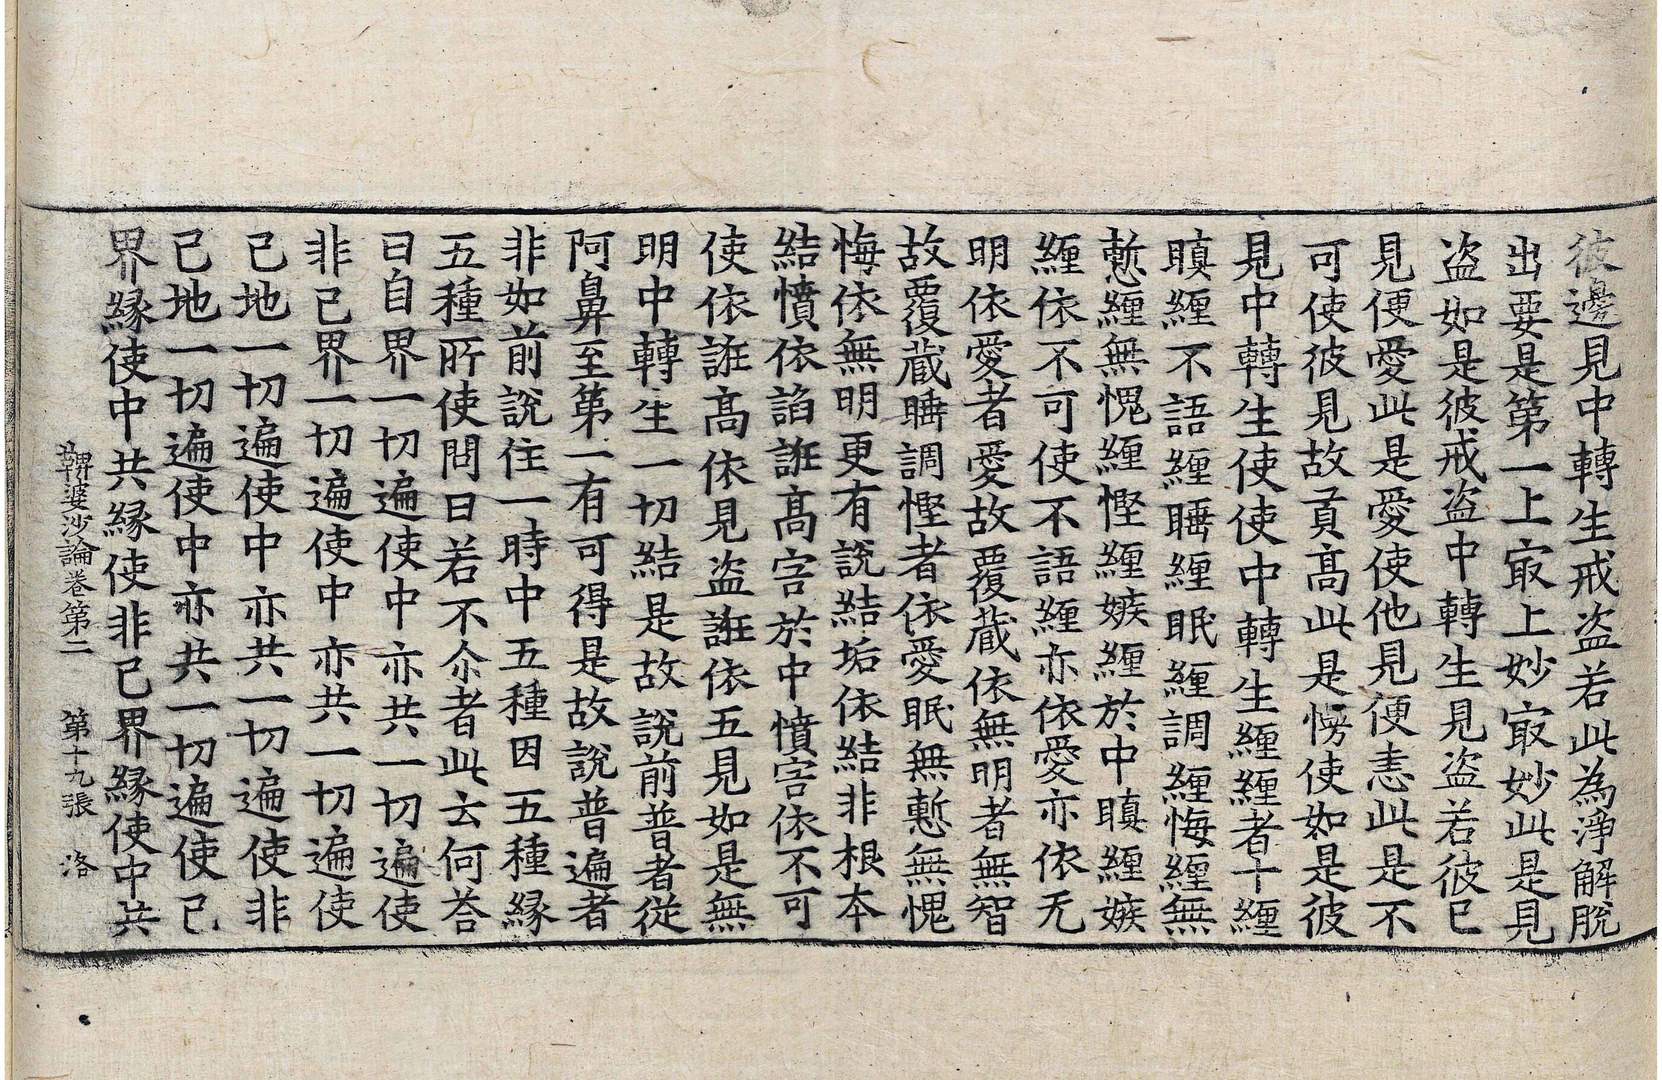 彼邊見中轉生戒盜若此為淨解脫
出要是第一上㝡上妙㝡妙此是見
盜如是彼戒盜中轉生見盜若彼已
見便愛此是愛使他見便恚此是不
可使彼見故貢髙此是慢使如是彼
見中轉生使使中轉生纏纏者十纏
瞋纏不語纏睡纏眠纏調纏悔纏無
慙纏無愧纏慳纏嫉纏於中瞋纏嫉
纏依不可使不語纏亦依愛亦依无
明依愛者愛故覆藏依無明者無智
故覆藏睡調慳者依愛眠無慙無愧
悔依無明更有說結垢依結非根本
結憤依諂誑髙害於中憤害依不可
使依誑髙依見盜誑依五見如是無
明中轉生一切結是故說前普者從
阿鼻至第一有可得是故說普遍者
非如前說往一時中五種因五種縁
五種所使問曰若不尒者此云何荅
曰自界一切遍使中亦共一切遍使
非己界一切遍使中亦共一切遍使
己地一切遍使中亦共一切遍使非
己地一切遍使中亦共一切遍使己
界縁使中共縁使非己界縁使中共
鞞婆沙論卷第二　第十九張　洛